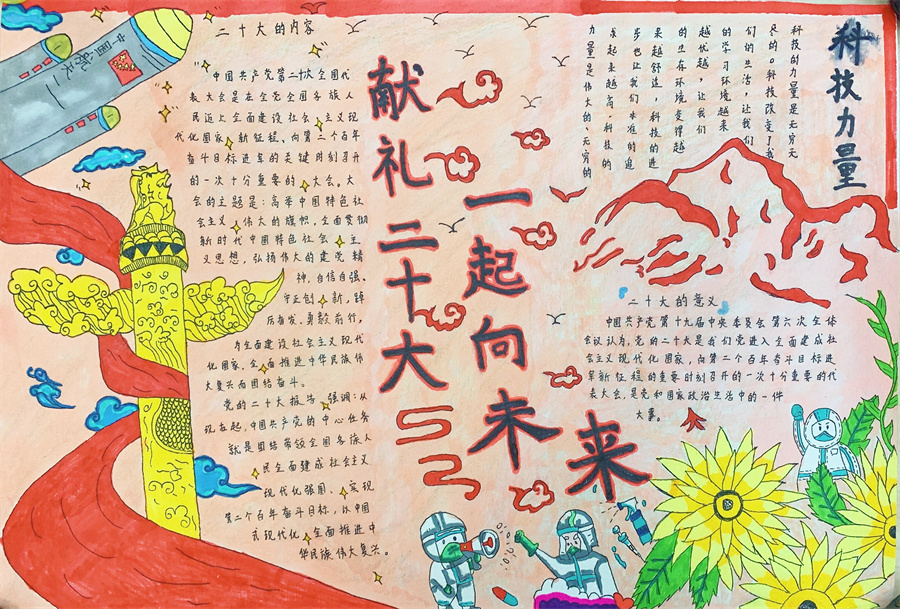 二十大的内容
中国共产党第二十次全国代
表大会是在全党全国各族人
民迈上全面建设社会主义现
代化国家新征程、向第二个百年
奋斗目标进军的关键时刻召开
的一次十分重要的大会。大
会的主题是:高举中国特色社
会主义伟大的旗帜,全面贯彻
新时代中国特色社会主
义思想,弘扬伟大的建党精
神,自信自强、
守正创新,踔
厉奋发、勇毅前行,
为全面建设社会主义现代
化国家、全面推进中华民族伟
大复兴而团结奋斗。
党的二十大报告强调:从
现在起,中国共产党的中心任务
就是团结带领全国各族人
民全面建成社会主义
现代化强国、实现
第二个百年奋斗目标,以中国
式现代化全面推进中
华民族伟大复兴。
献礼二十大
一起向未来
科技力量
科技的力量是无穷无
尽的。科技改变了我
们的生活,让我们
的学习环境越来
越优越,让我们
的生存环境变得越
来越舒适,科技的进
步也让我们水准的追
求起来越高,科技的
力量是伟大的、无穷的
二十大的意义
中国共产党第十九届中央委员会第六次全体
会议认为,党的二十大是我们党进入全面建成社
会主义现代化国家,向第二个百年奋斗目标进
军新征程的重要时刻召开的一次十分重要的代
表大会,是党和国家政治生活中的一件
大事。